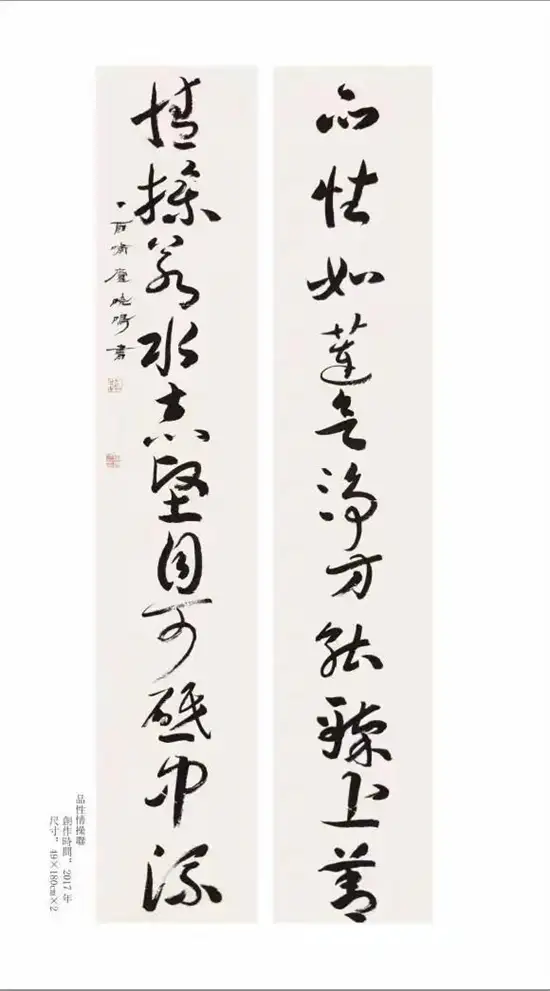 品性如蓮氣淨方能臻上善
情操若水志堅自可砥中流
丁酉嘯廬曉書
品性情操聯
創作時間：2017 年
尺寸：49×180cm×2